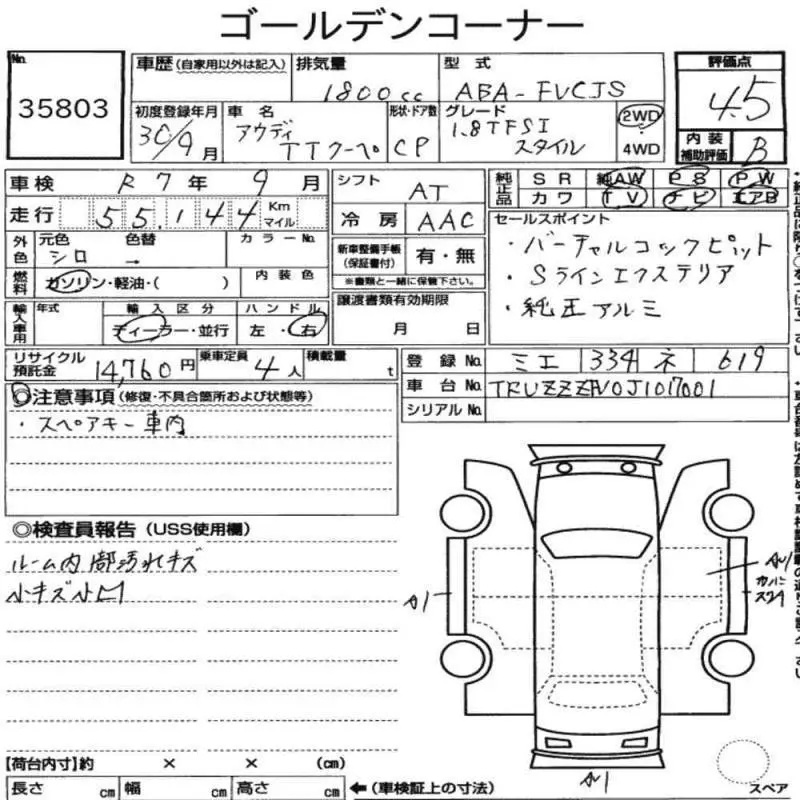 ゴールデンコーナー
No.
35803
車歴 (自家用以外は記入)
排気量
1800cc
型式
ABA-FVCJS
評価点
4.5
初度登録年月
30/9月
車名
アウディ
TTクーペ
形状・ドア数
CP
グレード
1.8TFSI
スタイル
2WD
4WD
内装
補助評価
B
車検 R7年 9月
シフト AT
純正品
SR 純AW PS PW
カワ TV ナビ エアB
走行 55,144 Km
マイル
冷房 AAC
セールスポイント
・バーチャルコックピット
・Sラインエクステリア
・純正アルミ
外色
元色 色替
シロ →
カラーNo.
新車整備手帳
(保証書付)
有・無
※書類と一緒に保管下さい。
燃料
ガソリン・軽油・( )
内装色
輸入車用
年式
輸入区分
ディーラー・並行
ハンドル
左・右
譲渡書類有効期限
月 日
リサイクル
預託金
14,760円
乗車定員
4人
積載量
t
登録No. ミエ 334 ネ 619
車台No. TRUZZZFV0J1017001
シリアルNo.
◎注意事項 (修復・不具合箇所および状態等)
・スペアキー車内
◎検査員報告 (USS使用欄)
ルーム内 部汚れキズ
小キズ小凹
A1
AU1
カバーに
スレ
AU1
スペア
【荷台内寸】約 × × (cm)
長さ cm 幅 cm 高さ cm ←(車検証上の寸法)